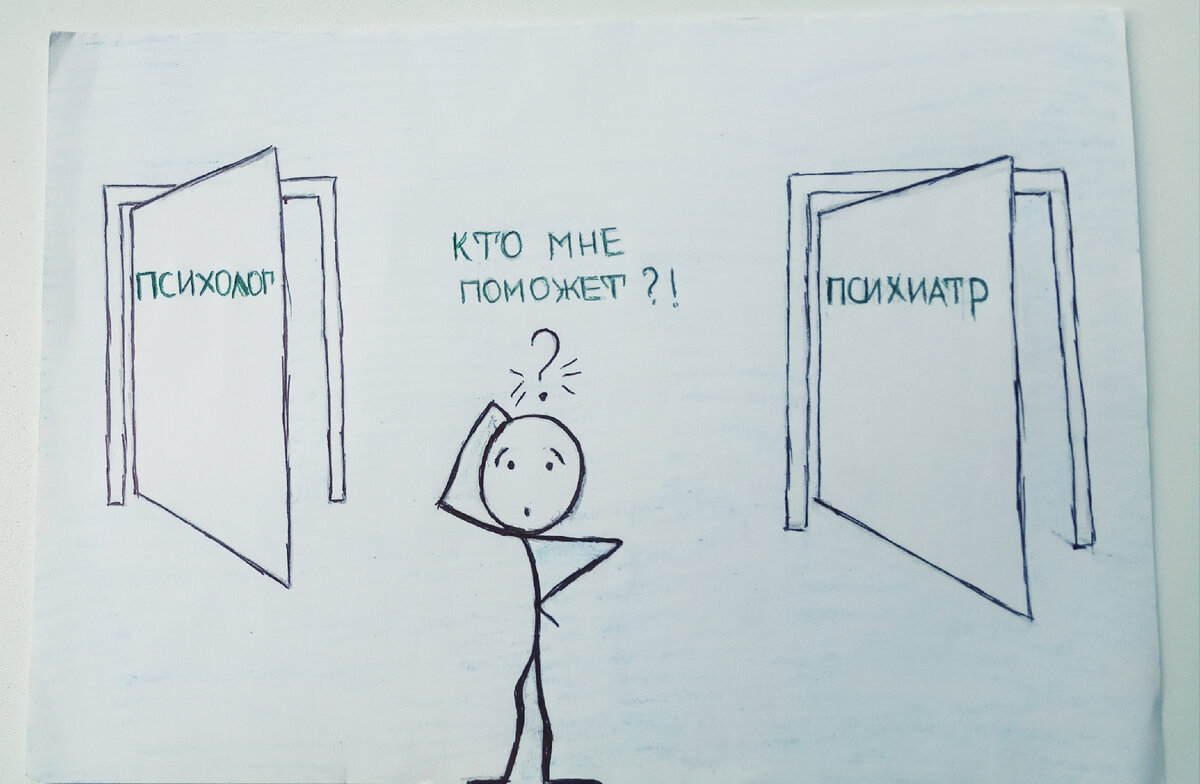 ПСИХОЛОГ
КТО МНЕ
ПОМОЖЕТ?!
?
ПСИХИАТР